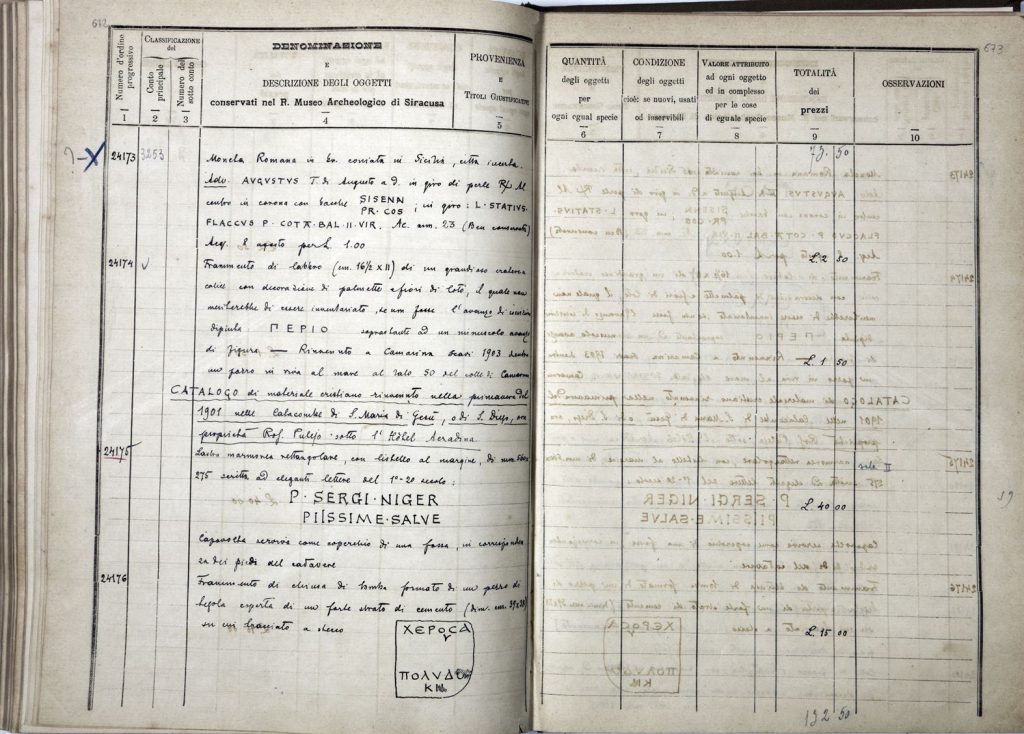 672
Numero d'ordine progressivo
CLASSIFICAZIONE
del
Conto principale
Numero del sotto conto
DENOMINAZIONE
E
DESCRIZIONE DEGLI OGGETTI
conservati nel R. Museo Archeologico di Siracusa
PROVENIENZA
E
TITOLI GIUSTIFICATIVI
1 2 3 4 5
24173 3253 Moneta Romana in br. coniata in Sicilia, città incerta.
Adv. AVGVSTVS T. di Augusto a d. in giro di perle Rx Al
centro in corona con bacche SISENN
PR·COS ; in giro: L·STATIVS·
FLACCVS P·COTA·BAL·II·VIR. Ac. mm. 23 (Ben conservata)
Acq. 8 agosto per L. 1.00
24174 Frammento di labbro (cm. 16½ x 11) di un grandioso cratere a
calice con decorazione di palmette e fiori di loto, il quale non
meriterebbe di essere inventariato, se non fosse l'avanzo di iscrizione
dipinta ΠΕΡΙΟ soprastante ad un minuscolo avanzo
di figura — Rinvenuto a Camarina scavi 1903 dentro
un pozzo in riva al mare al lato SO del colle di Camarina
CATALOGO di materiale cristiano rinvenuto nella primavera del
1901 nelle Catacombe di S. Maria di Gesù, o di S. Diego, ora
proprietà Prof. Pulejo sotto l'Hôtel Acradina
24175 Lastra marmorea rettangolare, con listello al margine, di mm.
275 scritta ad eleganti lettere del 1°-2° secolo:
P·SERGI·NIGER
PIISSIME·SALVE
Capovolta serviva come coperchio di una fossa, in corrisponden
za dei piedi del cadavere
24176 Frammento di chiusa di tomba formato di un pezzo di
tegola coperta di un forte strato di cemento (dim. cm. 39x29)
su cui tracciato a stecco
ΧΕΡΟϹΑ
ΠΟΛΥΔΟ
673
QUANTITÀ
degli oggetti
per
ogni egual specie
CONDIZIONE
degli oggetti
cioè: se nuovi, usati
od inservibili
VALORE ATTRIBUITO
ad ogni oggetto
od in complesso
per le cose
di eguale specie
TOTALITÀ
dei
prezzi
OSSERVAZIONI
6 7 8 9 10
73 50
L. 2 50
L. 1 50
sala II
L. 40 00
L. 15 00
132 50